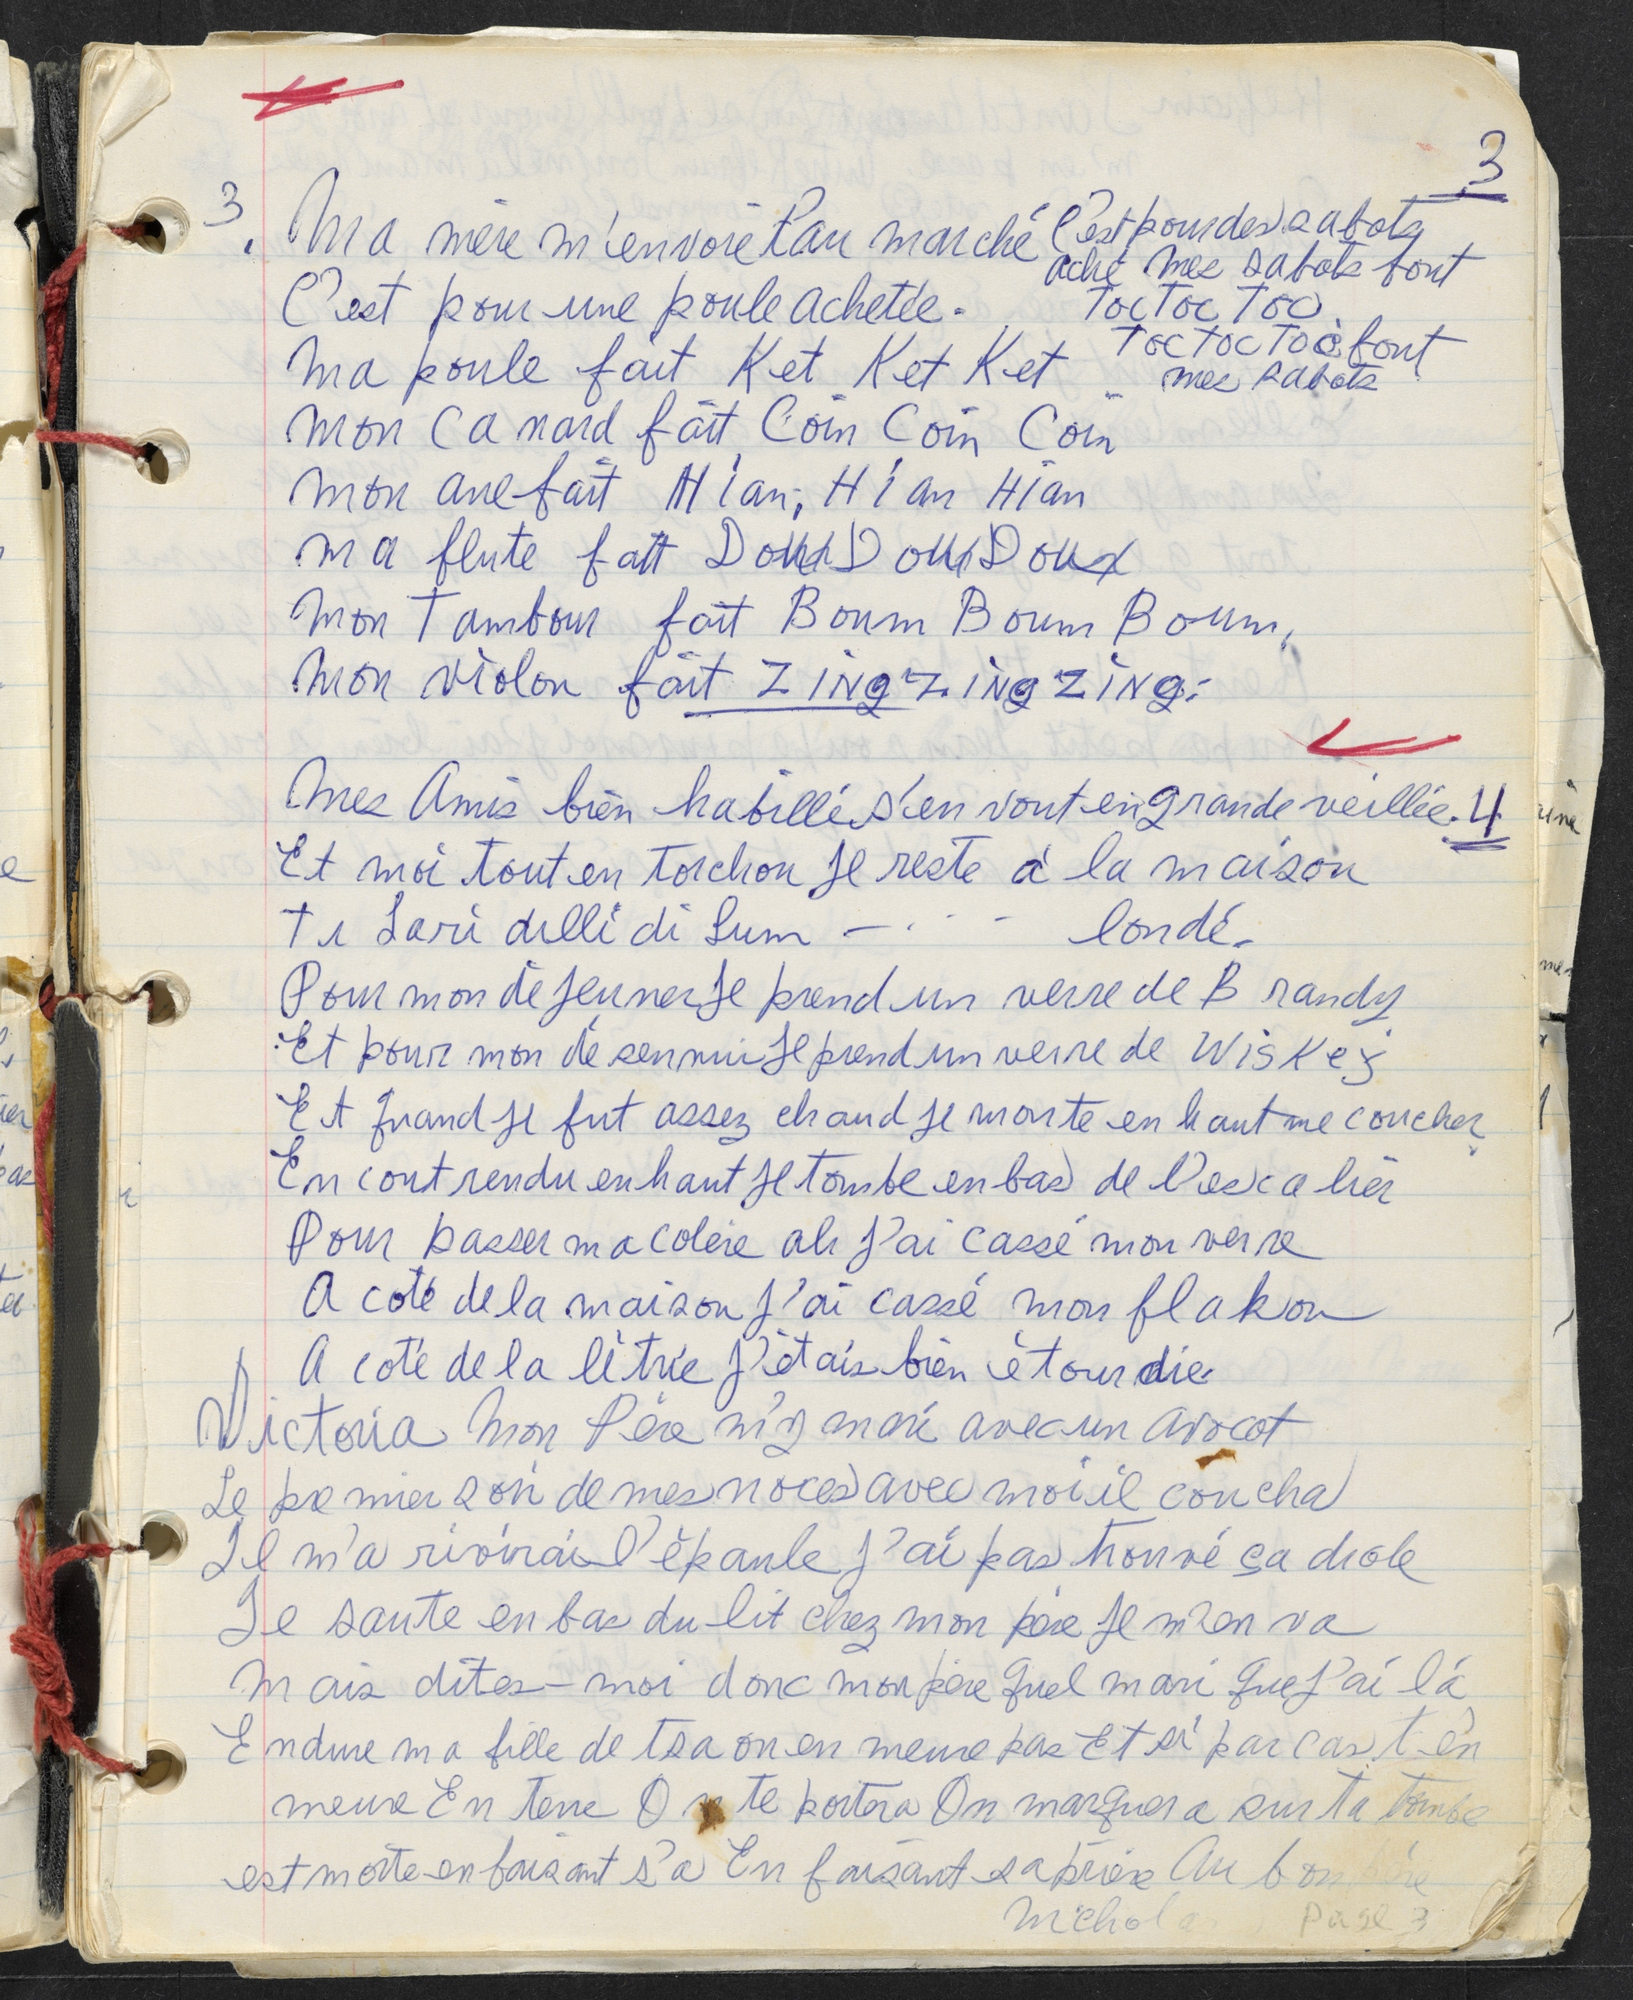 3
3. Ma mère m'envoie t'au marché
C'est pour des sabots
aché mes sabots font
Toc Toc Toc
Toc Toc Toc font
mes sabots
C'est pour une poule achetée.
Ma poule fait Ket Ket Ket
Mon canard fait Coin Coin Coin
Mon ane fait Hian, Hian Hian
Ma flute fait Doux Doux Doux
Mon Tambour fait Boum Boum Boum,
Mon violon fait Zing Zing Zing.
Mes Amis bien habillé s'en vont en grande veillée. 4
Et moi tout en torchon je reste à la maison
Ti Lari delli di Lum - - - londé.
Pour mon déjeuner je prend un verre de Brandy
Et pour mon desennui je prend un verre de Wiskey
Et quand je fut assez chaud je monte en haut me coucher
En cout rendu en haut je tombe en bas de l'escalier
Pour passer ma colère ah j'ai cassé mon verre
A coté de la maison j'ai cassé mon flakon
A coté de la litrie j'étais bien étourdie
Victoria Mon Père m'y marié avec un avocat
Le premier soir de mes noces avec moi il coucha
Il m'a l'épaule j'ai pas trouvé ça drole
Je saute en bas du lit chez mon père je m'en va
Mais dites-moi donc mon père quel mari que j'ai là
Endure ma fille de tsa on en meure pas Et si par cas t'en
meure En terre On te portera On marquera sur ta tombe
est morte en faisant s'a En faisant sa prière Au bon père
Nichola Page 3